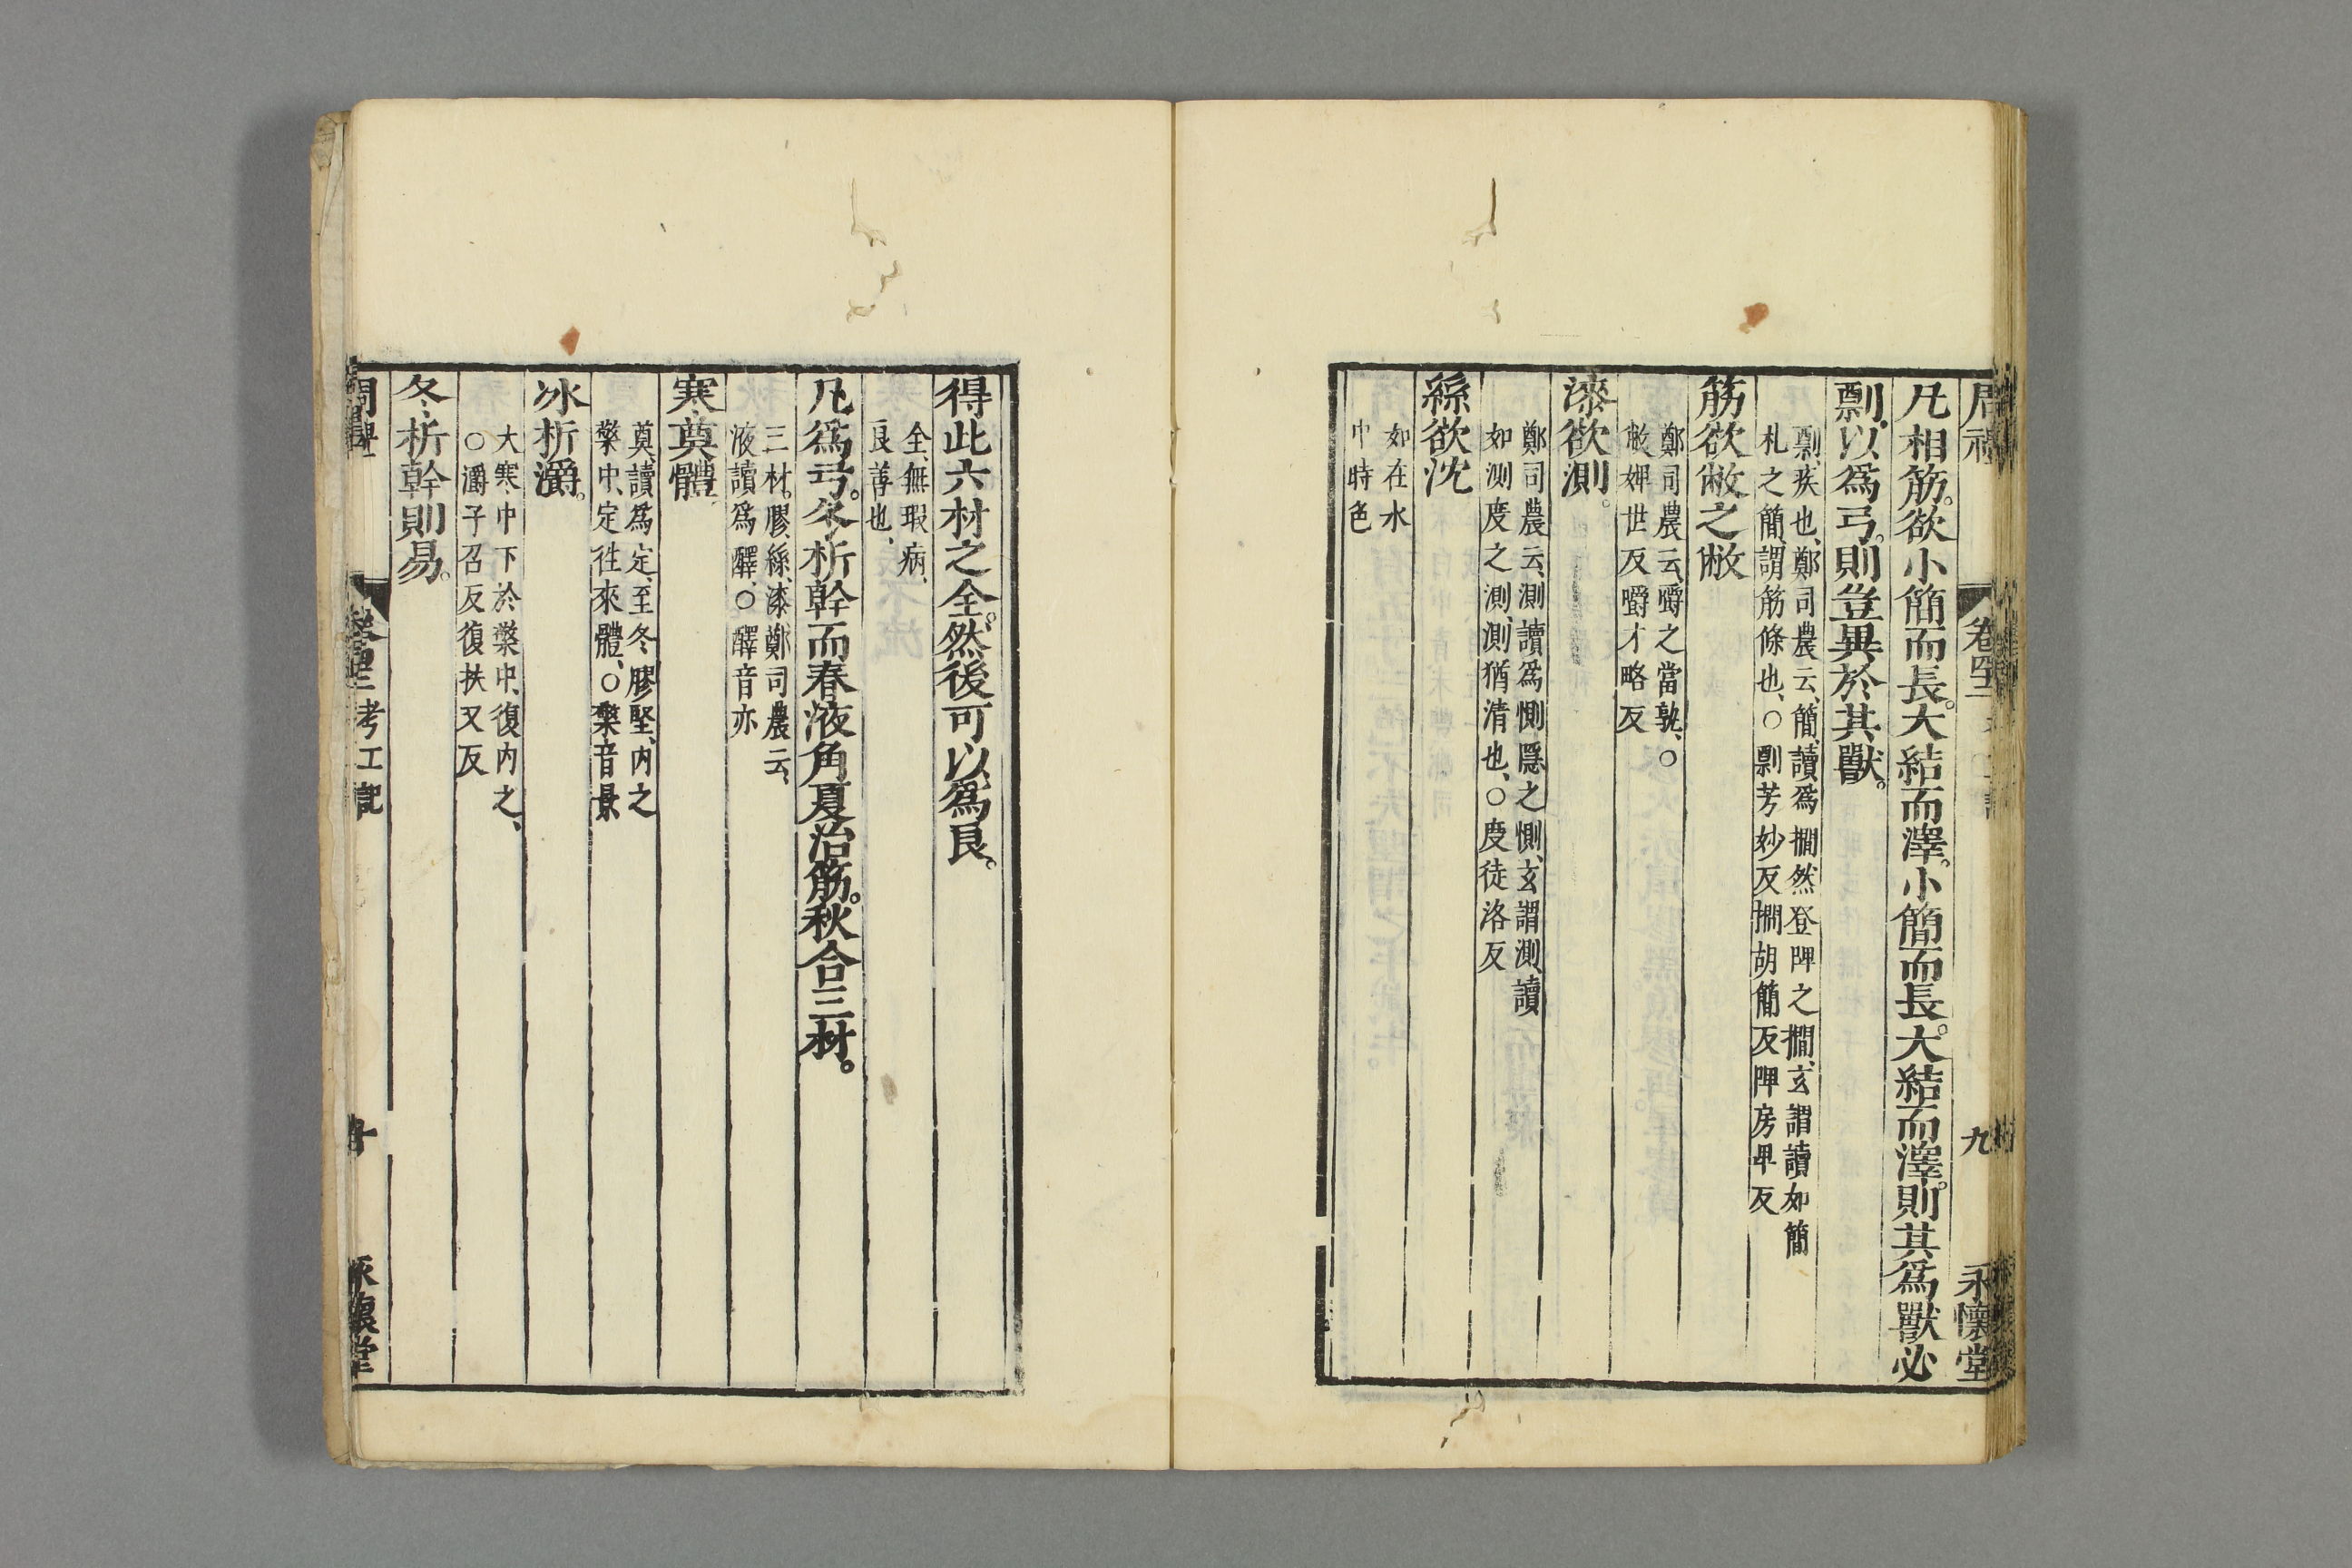 凡相筋。欲小簡而長。大結而澤。小簡而長。大結而澤。則其爲獸必
剽。以爲弓。則豈異於其獸。
剽、疾也、鄭司農云、簡、讀爲撊然登陴之撊、玄謂讀如簡
札之簡、謂筋條也、○剽芳妙反撊胡簡反陴房畀反
筋欲敝之敝
鄭司農云、嚼之當孰、○
敝婢世反嚼才略反
漆欲測。
鄭司農云、測讀爲惻隱之惻、玄謂測、讀
如測度之測、測猶清也、○度徒洛反
絲欲沈
如在水
中時色
九
永懷堂
得此六材之全。然後可以爲良。
全、無瑕病、
良善也、
凡爲弓。冬析幹而春液角。夏治筋。秋合三材。
三材。膠、絲、漆、鄭司農云、
液讀爲醳、○醳音亦
寒奠體
奠、讀爲、定、至冬膠堅、內之
檠中、定往來體、○檠音景
冰析灂。
大寒中下於檠中、復内之、
○灂子召反復扶又反
冬析幹則易。
考工記
十
永懷堂